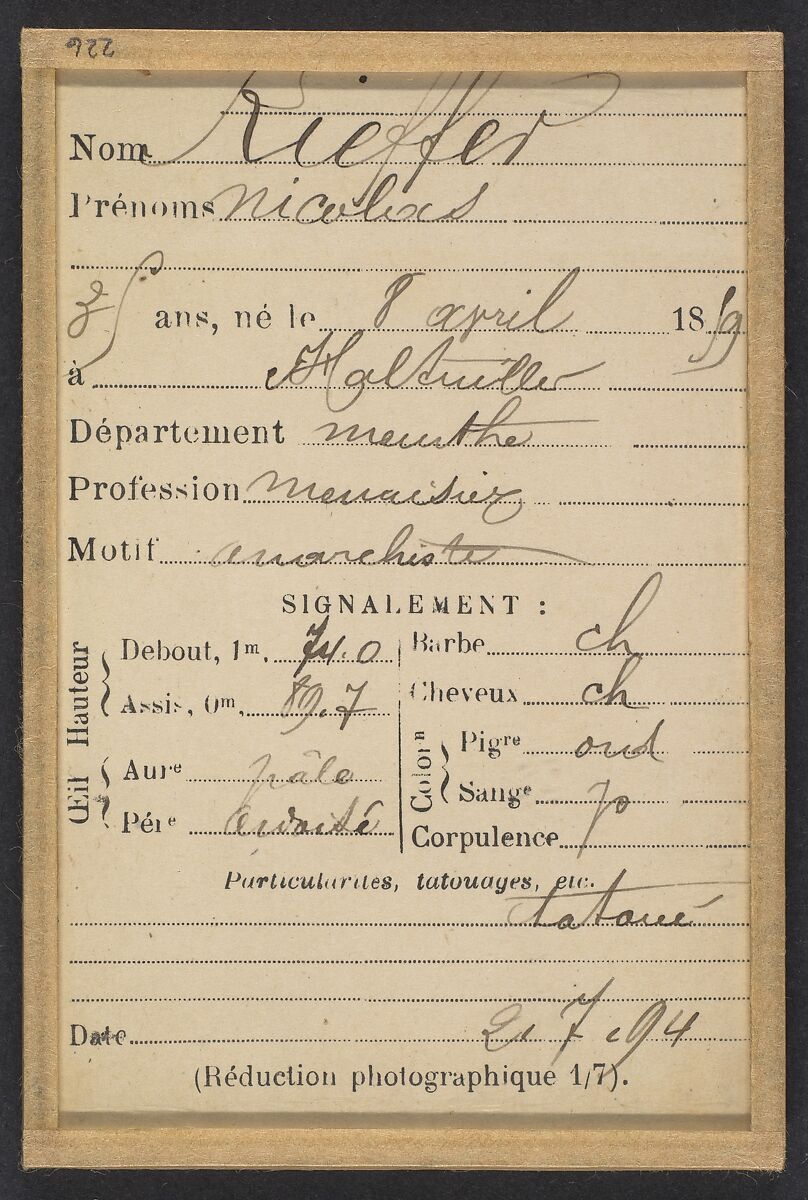 922
Nom Kieffer
Prénoms Nicolas
35 ans, né le 8 avril 1859
à Holtzviller
Département meurthe
Profession Menuisier
Motif anarchiste
SIGNALEMENT :
Hauteur
Debout, 1m, 74.0
Assis, 0m, 89.7
Œil
Aure pâle
Pére
Barbe ch
Cheveux ch
Colorn
Pigre
Sange p
Corpulence
Particularités, tatouages, etc.
tatoué
Date 2.7.94
(Réduction photographique 1/7).